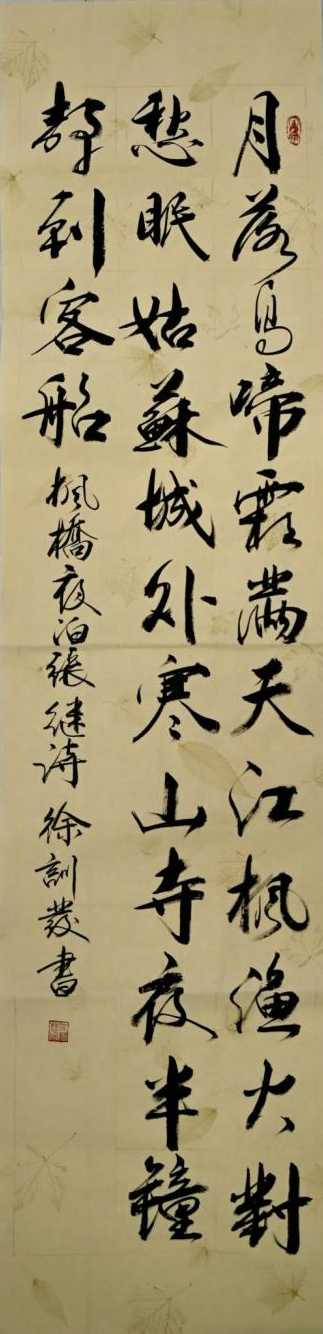 月落烏啼霜滿天江楓漁火對
愁眠姑蘇城外寒山寺夜半鐘
聲到客船 楓橋夜泊張継詩 徐訓發書